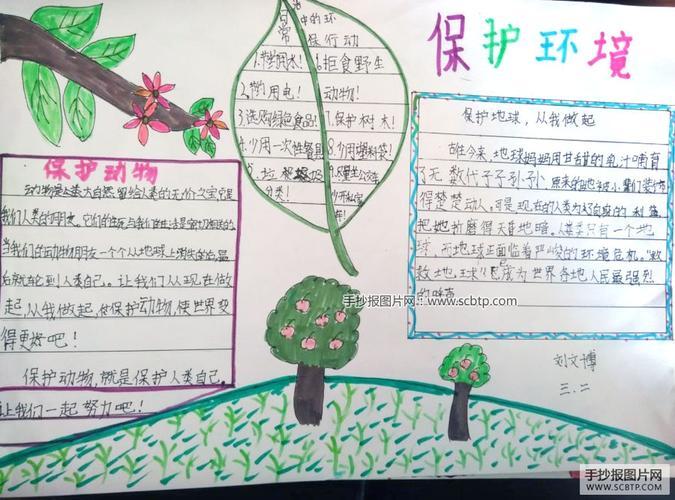 保护环境
日常
中的环
保行动
1.节约用水！
6.拒食野生
2.节约用电！
动物！
3.选购绿色食品！
7.保护树木！
4.少用一次性餐具
8.少用塑料袋！
5.垃圾
分类！
保护动物
动物是人类大自然留给人类的无价之宝它是
我们人类的好朋友。它们的生死与我们的生活是密切相关的
当我们的动物朋友一个个从地球上消失的
后就轮到人类自己。让我们从现在做
起，从我做起，使保护动物，使世界变
得更好吧！
保护动物，就是保护人类自己。
让我们一起努力吧！
保护地球，从我做起
古往今来，地球妈妈用甘甜的乳汁哺育
了无数代子子孙孙，原来的地球被小
楚楚动人。可是，现在的人类为了自私的利益，
把她折磨得天昏地暗。人类只有一个地
球，而地球正面临着严峻的环境危机。“救
救地球”已成为世界各地人民最强烈
的呼声
刘文博
三.二
手抄报图片网：www.scbtp.com
手抄报图片网
WWW.SCBTP.COM